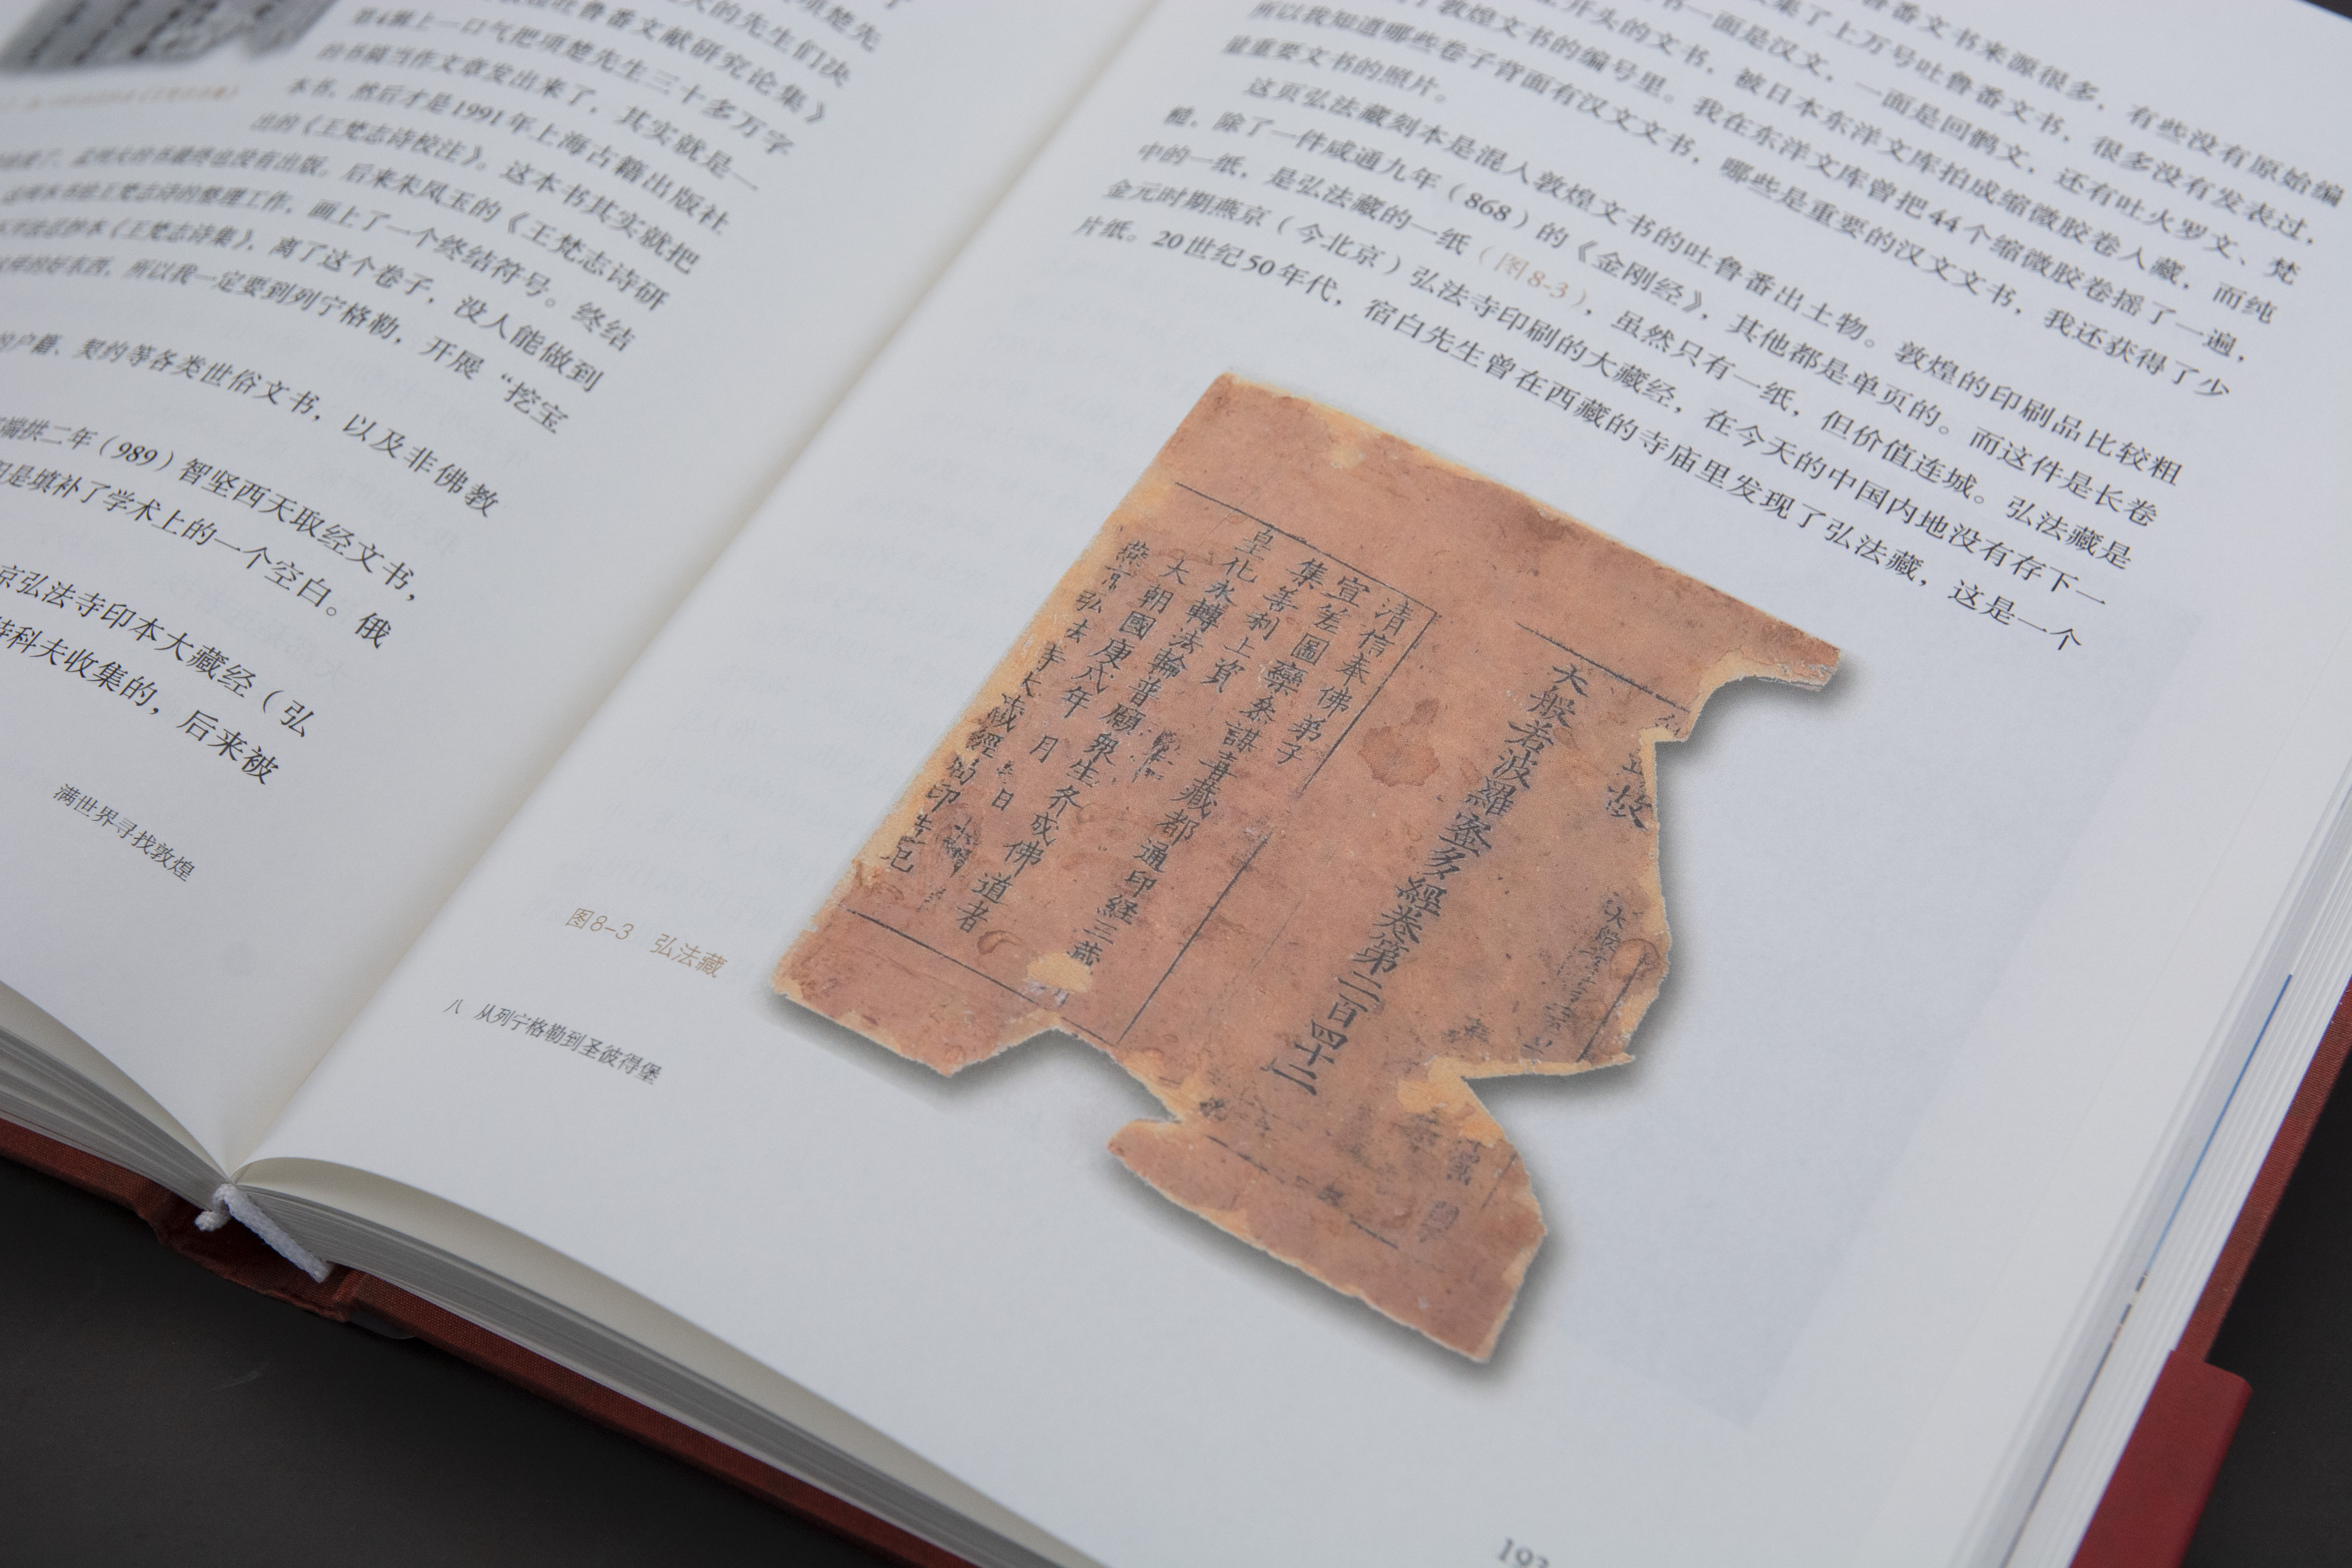 项楚先
的先生们决
吐鲁番文献研究论集》
第4辑上一口气把项楚先生三十多万字
的书稿当作文章发出来了，其实就是一
本书，然后才是1991年上海古籍出版社
出的《王梵志诗校注》。这本书其实就把
孟列夫的书最终也没有出版，后来朱凤玉的《王梵志诗研
王梵志诗的整理工作，画上了一个终结符号。终结
《王梵志诗集》，离了这个卷子，没人能做到
的好东西，所以我一定要到列宁格勒，开展“挖宝
户籍、契约等各类世俗文书，以及非佛教
端拱二年（989）智坚西天取经文书，
是填补了学术上的一个空白。俄
京弘法寺印本大藏经（弘
特科夫收集的，后来被
满世界寻找敦煌
番文书来源很多，有些没有原始编
集了上万号吐鲁番文书，很多没有发表过，
书一面是汉文，一面是回鹘文，还有吐火罗文、梵
开头的文书，被日本东洋文库拍成缩微胶卷入藏，而纯
敦煌文书的编号里。我在东洋文库曾把44个缩微胶卷摇了一遍，
所以我知道哪些卷子背面有汉文文书，哪些是重要的汉文文书，我还获得了少
量重要文书的照片。
这页弘法藏刻本是混入敦煌文书的吐鲁番出土物。敦煌的印刷品比较粗
糙，除了一件咸通九年（868）的《金刚经》，其他都是单页的。而这件是长卷
中的一纸，是弘法藏的一纸（图8-3），虽然只有一纸，但价值连城。弘法藏是
金元时期燕京（今北京）弘法寺印刷的大藏经，在今天的中国内地没有存下一
片纸。20世纪50年代，宿白先生曾在西藏的寺庙里发现了弘法藏，这是一个
故
大般若波羅蜜多經卷第二百四十二
清信奉佛弟子
宣差圖欒叅謀者藏都通印経三藏
集善利上資
皇化永轉法輪普願衆生齐成佛道者
大朝國庚戌年 月 日
燕京弘法寺大藏經局印造記
图8-3 弘法藏
八 从列宁格勒到圣彼得堡
193